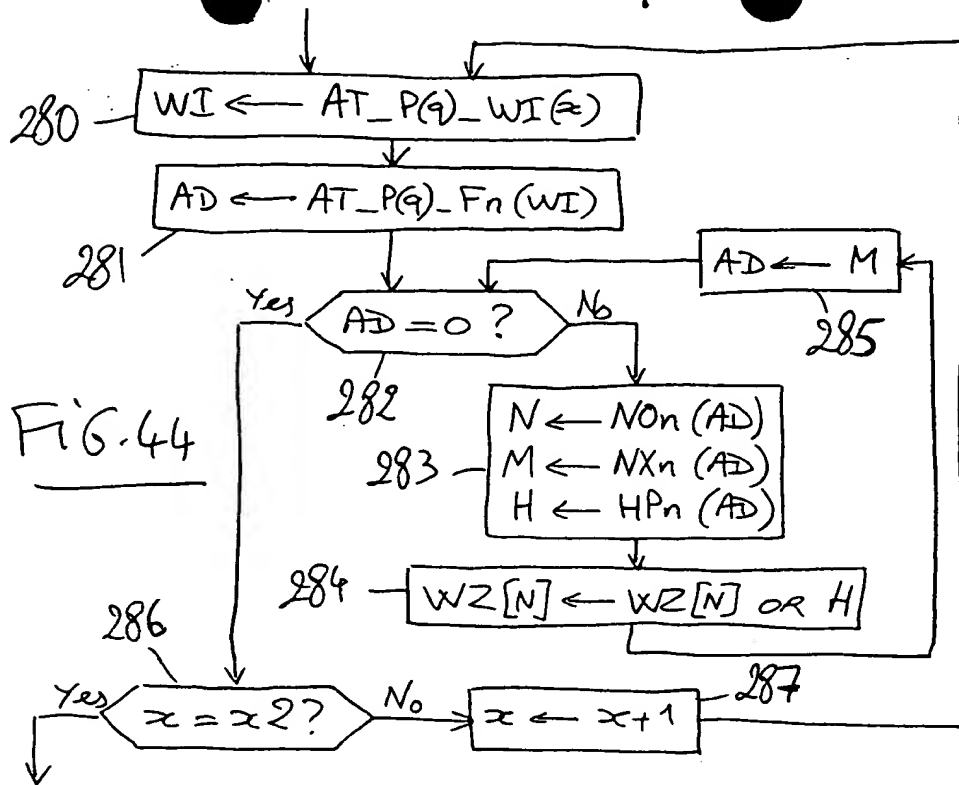 280
WI ← AT_P(q)_WI(x)
AD ← AT_P(q)_Fn(WI)
281
AD ← M
285
Yes
AD = 0 ?
No
282
FiG.44
283
N ← NOn (AD)
M ← NXn (AD)
H ← HPn (AD)
284
WZ[N] ← WZ[N] OR H
286
Yes
x = x2?
No
x ← x+1
287